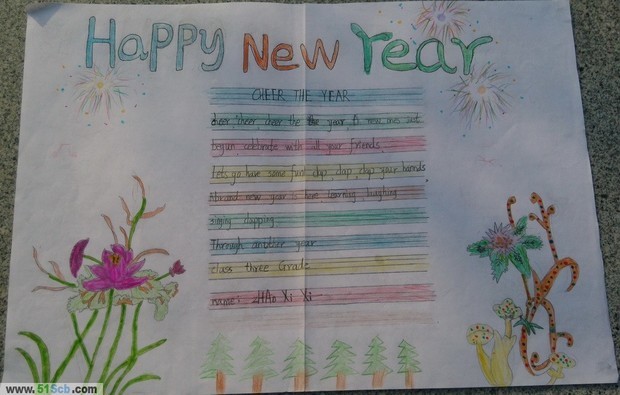 Happy New Year
CHEER THE YEAR
cheer cheer cheer the the year A new one's just
begun, celebrate with all your friends,
Let's go have some fun! clap, clap, clap your hannds,
Abrand new year is here learning laughing
singing clapping,
Through another year
class three Grade
name: ZHAo Xi Xi
www.51Scb.com